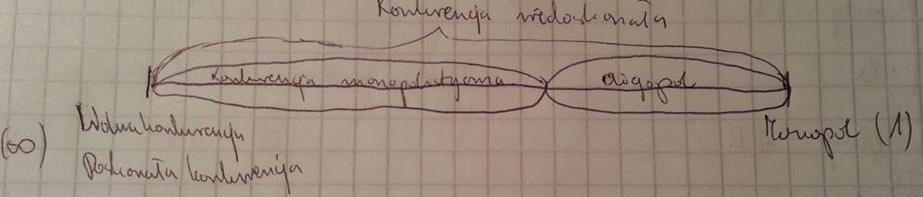 Konkurencja niedoskonała
Konkurencja monopolistyczna oligopol
(∞) Wolna konkurencja Monopol (1)
Doskonała konkurencja